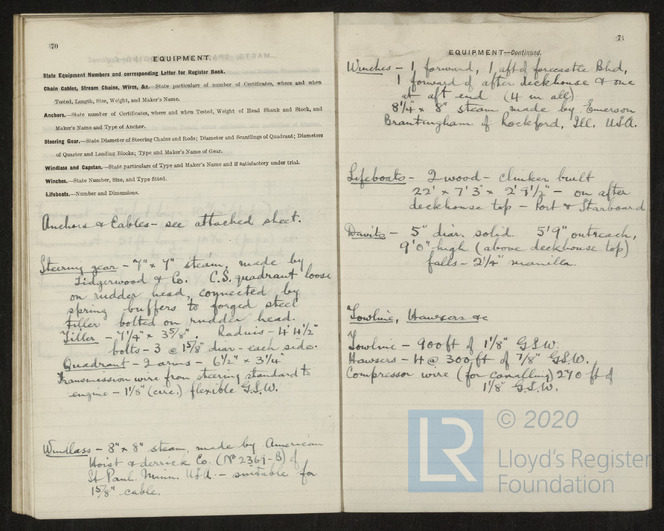 70
EQUIPMENT.
State Equipment Numbers and corresponding Letter for Register Book.
Chain Cables, Stream Chains, Wires, &c.—State particulars of number of Certificates, where and when
Tested, Length, Size, Weight, and Maker's Name.
Anchors.—State number of Certificates, where and when Tested, Weight of Head Shank and Stock, and
Maker's Name and Type of Anchor.
Steering Gear.—State Diameter of Steering Chains and Rods; Diameter and Scantlings of Quadrant; Diameters
of Quarter and Leading Blocks; Type and Maker's Name of Gear.
Windlass and Capstan.—State particulars of Type and Maker's Name and if satisfactory under trial.
Winches.—State Number, Size, and Type fitted.
Lifeboats.—Number and Dimensions.
Anchors & Cables - see attached sheet.
Steering gear - 7" x 7" steam, made by
Lidgerwood & Co. C.S. quadrant loose
on rudder head, connected by
spring buffers to forged steel
tiller bolted on rudder head.
Tiller - 7 1/4" x 3 5/8" Radius - 4' 4 1/2"
bolts - 3 @ 1 5/8" diar - each side.
Quadrant - 2 arms - 6 1/2" x 3 1/4"
Transmission wire from steering standard to
engine - 1 1/8" (circ.) flexible G.S.W.
Windlass - 8" x 8" steam, made by American
Hoist & derrick Co. (No 2369-B) of
St Paul. Minn. U.S.A. - suitable for
1 5/8" cable.
71
EQUIPMENT—Continued.
Winches - 1 forward, 1 aft of forecastle Bhd,
1 forward of after deckhouse & one
at aft end. (4 in all)
8 1/4 x 8" steam made by Emerson
Brantingham of Rockford, Ill. USA.
Lifeboats - 2 wood - clinker built
22' x 7' 3" x 2' 9 1/2" - on after
deckhouse top - Port & Starboard
Davits - 5" diar. solid 5' 9" outreach,
9' 0" high (above deckhouse top)
falls - 2 1/4" manilla
Towline, Hawsers &c
Towline - 900 ft of 1 1/8" G.S.W.
Hawsers - 4 @ 300 ft of 7/8" G.S.W.
Compressor wire (for canalling) 270 ft of
1 1/8" G.S.W.
© 2020
LR
Lloyd's Register
Foundation